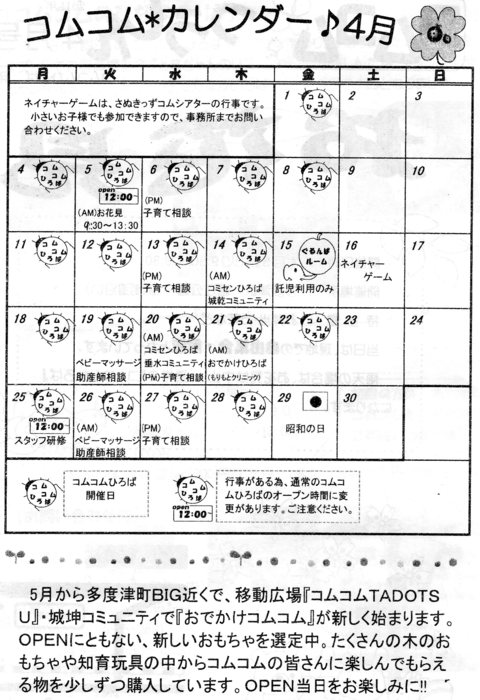 コムコム*カレンダー♪4月
月 火 水 木 金 土 日
ネイチャーゲームは、さぬきっずコムシアターの行事です。
小さいお子様でも参加できますので、事務所までお問い
合わせください。
1 コムコムひろば
2
3
4 コムコムひろば
5 コムコムひろば
open
12:00
(AM)お花見
9:30～13:30
6 コムコムひろば
(PM)
子育て相談
7 コムコムひろば
8 コムコムひろば
9
10
11 コムコムひろば
12 コムコムひろば
13 コムコムひろば
(PM)
子育て相談
14 コムコムひろば
(AM)
コミセンひろば
城乾コミュニティ
15 ぐるんぱ
ルーム
託児利用のみ
16
ネイチャー
ゲーム
17
18 コムコムひろば
19 コムコムひろば
ベビーマッサージ
助産師相談
20 コムコムひろば
(AM)
コミセンひろば
垂水コミュニティ
(PM)子育て相談
21 コムコムひろば
(AM)
おでかけひろば
(もりもとクリニック)
22 コムコムひろば
23
24
25 コムコムひろば
open
12:00
スタッフ研修
26 コムコムひろば
(AM)
ベビーマッサージ
助産師相談
27 コムコムひろば
(PM)
子育て相談
28 コムコムひろば
29
昭和の日
30
コムコムひろば
コムコムひろば
開催日
コムコムひろば
open
12:00
行事がある為、通常のコムコ
ムひろばのオープン時間に変
更があります。ご注意ください。
5月から多度津町BIG近くで、移動広場『コムコムTADOTS
U』・城坤コミュニティで『おでかけコムコム』が新しく始まります。
OPENにともない、新しいおもちゃを選定中。たくさんの木のお
もちゃや知育玩具の中からコムコムの皆さんに楽しんでもらえ
る物を少しずつ購入しています。OPEN当日をお楽しみに!!